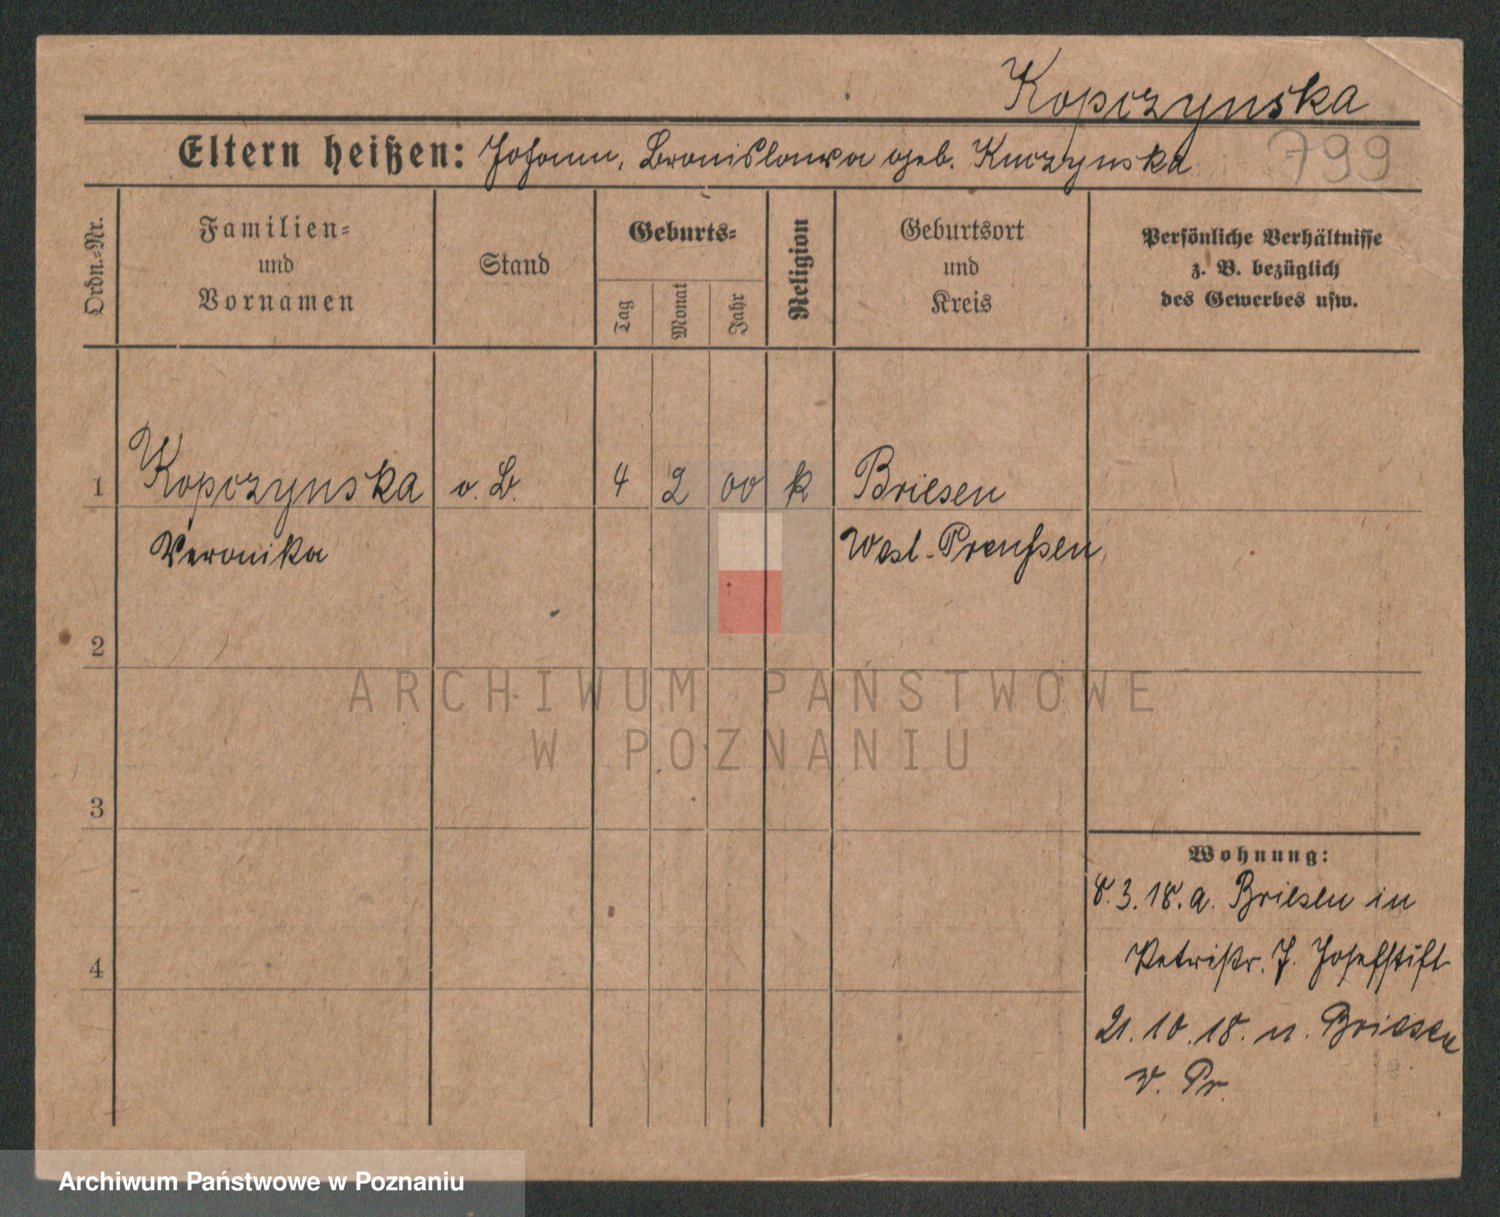 Kopczynska
Eltern heißen: Johann, Bronislawa geb. Kuczynska
799
Ordn.-Nr.
Familien-
und
Vornamen
Stand
Geburts-
Tag
Monat
Jahr
Religion
Geburtsort
und
Kreis
Persönliche Verhältnisse
z. B. bezüglich
des Gewerbes usw.
1 Kopczynska o. B. 4 2 00 k Briesen
Veronika West-Preußen
2
3
4
Wohnung:
8.3.18. a. Briesen in
Petristr. 7. Josefstift
21.10.18. n. Briesen
W. Pr.
ARCHIWUM PAŃSTWOWE
W POZNANIU
Archiwum Państwowe w Poznaniu